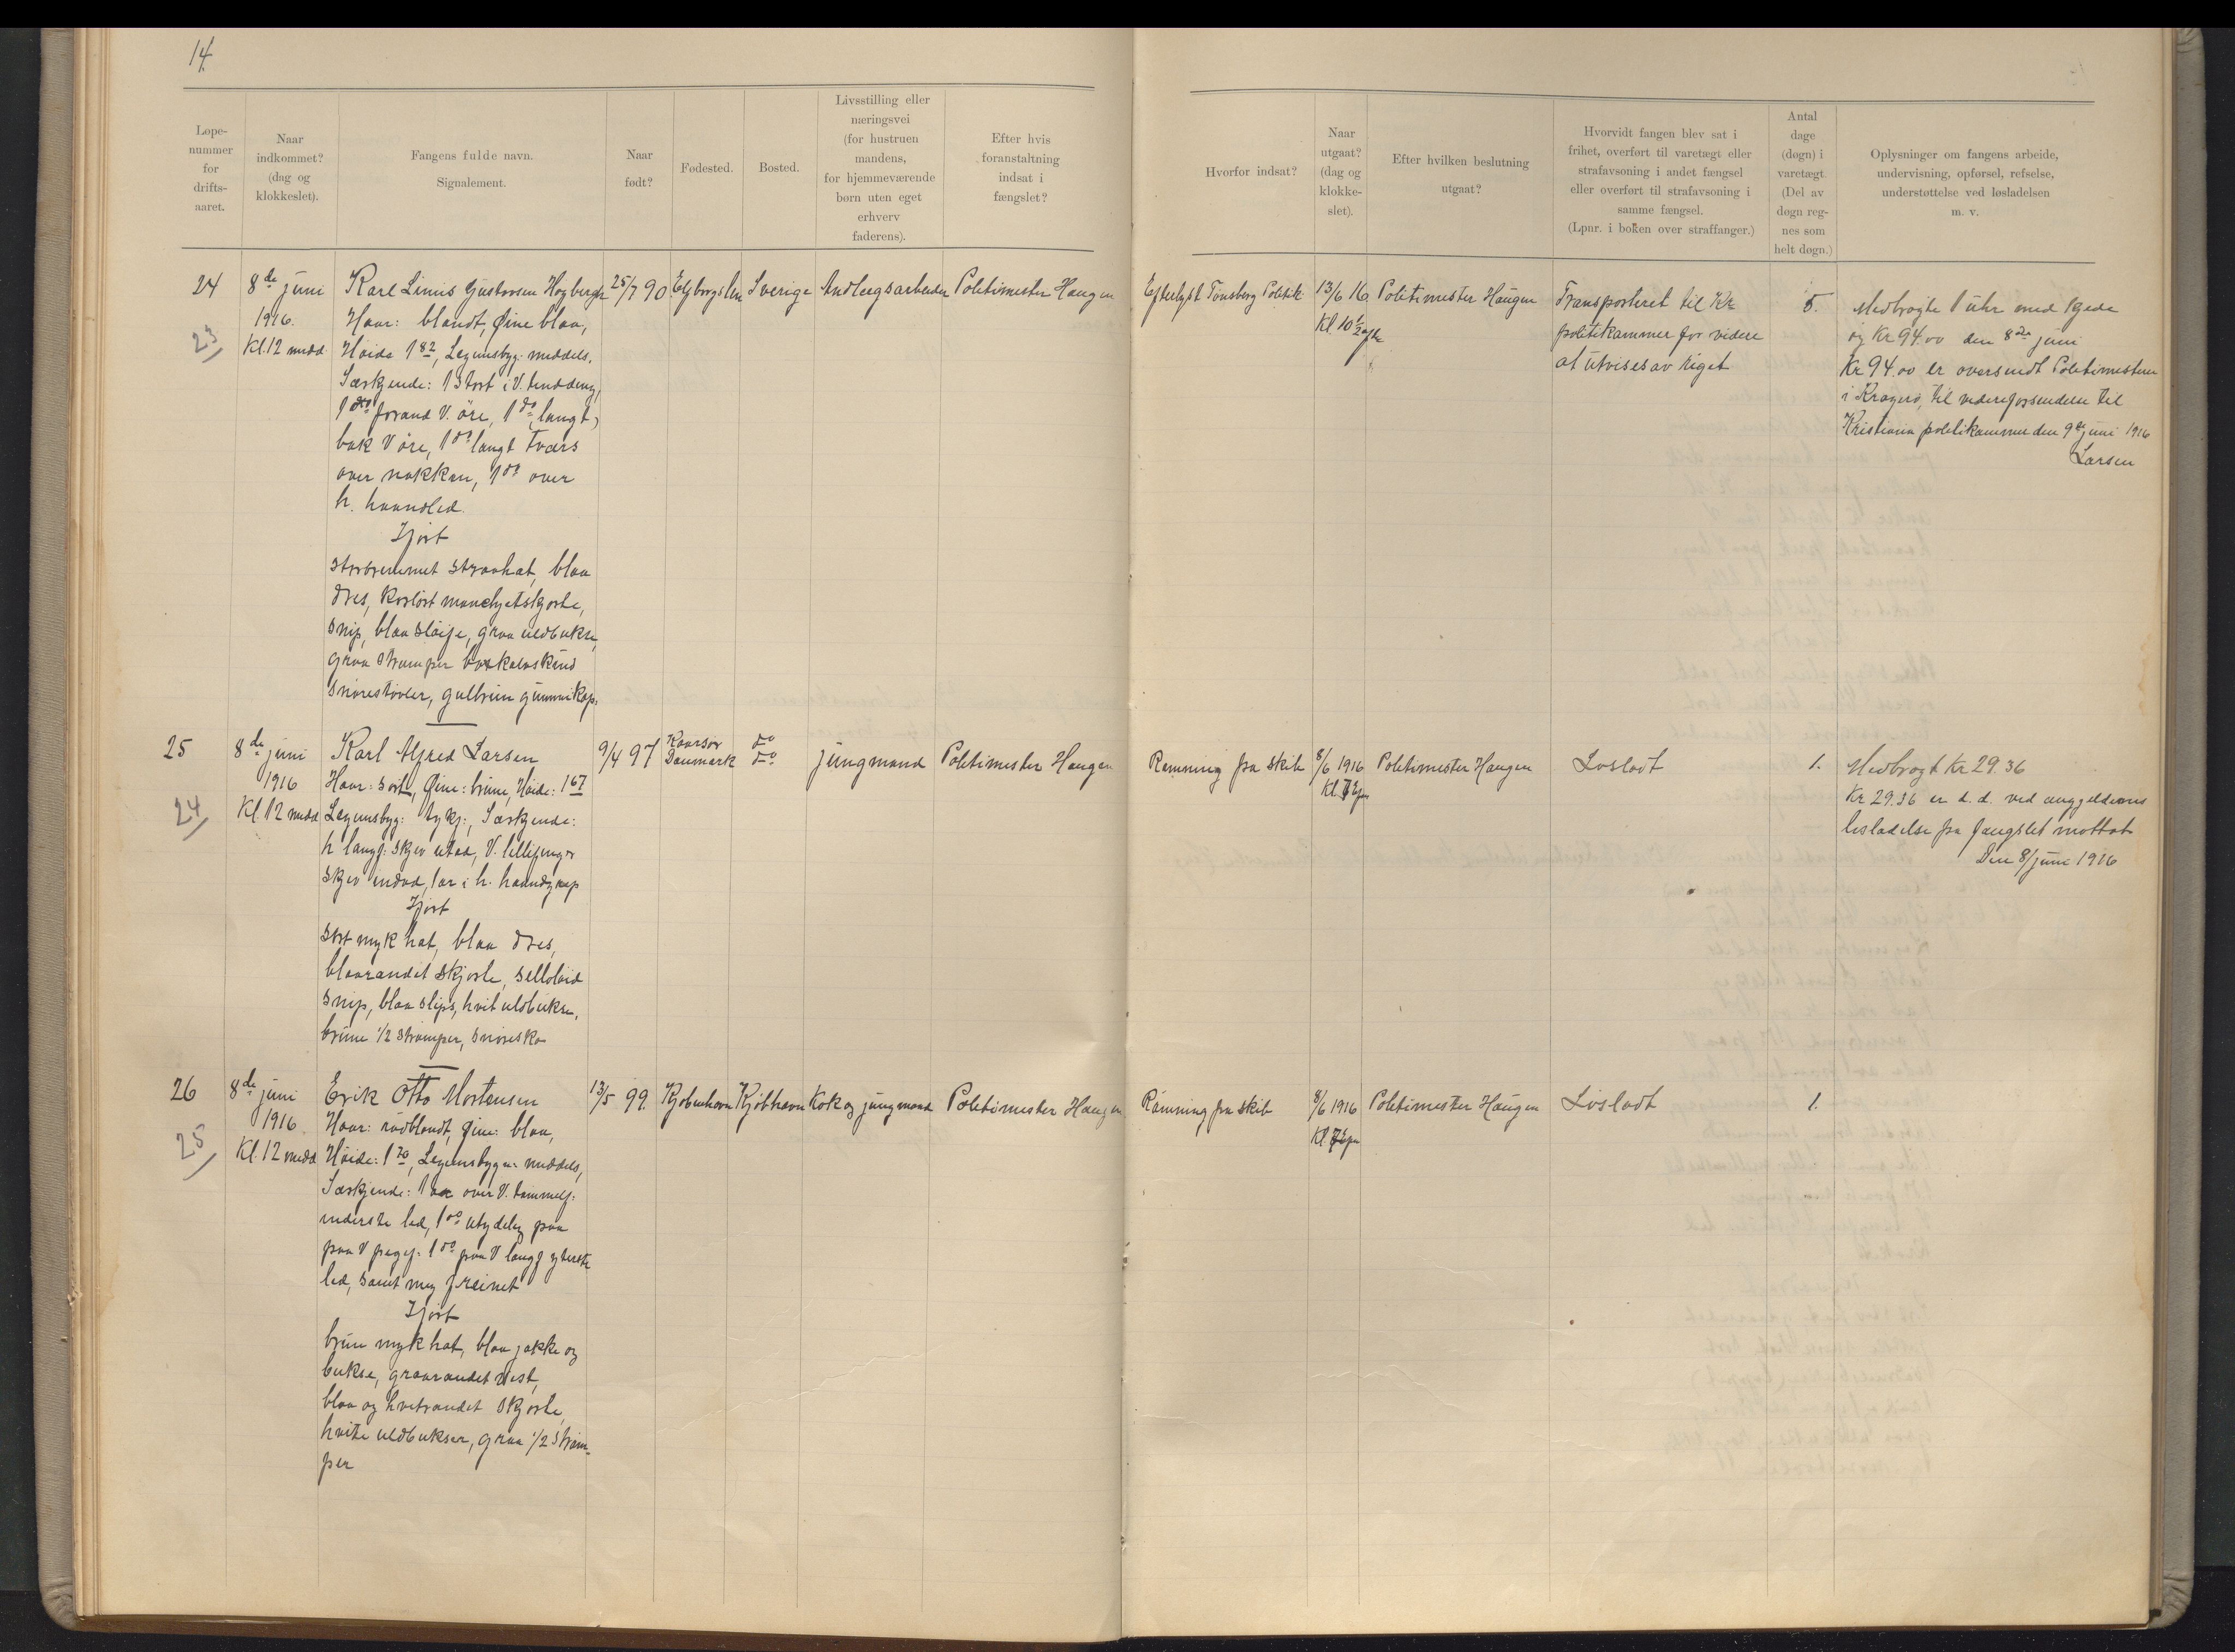 14.
Løpe-
nummer
for
drifts-
aaret.
Naar
indkommet?
(dag og
klokkeslet).
Fangens fulde navn.
Signalement.
Naar
født?
Fødested.
Bosted.
Livsstilling eller
næringsvei
(for hustruen
mandens,
for hjemmeværende
børn uten eget
erhverv
faderens).
Efter hvis
foranstaltning
indsat i
fængslet?
Hvorfor indsat?
Naar
utgaat?
(dag og
klokke-
slet).
Efter hvilken beslutning
utgaat?
Hvorvidt fangen blev sat i
frihet, overført til varetægt eller
strafavsoning i andet fængsel
eller overført til strafavsoning i
samme fængsel.
(Lpnr. i boken over straffanger.)
Antal
dage
(døgn) i
varetægt.
(Del av
døgn reg-
nes som
helt døgn.)
Oplysninger om fangens arbeide,
undervisning, opførsel, refselse,
understøttelse ved løsladelsen
m. v.
24
23
8de juni
1916.
Kl. 12 midd
Karl Linus Gustavsen Høgberg
Haar: blondt, Øine blaa,
Høide 1 82, Legemsbyg: middels.
Særkjende: 1 stort
foran V. øre, 1 do langt
bak V øre, 1 do langt tværs
over nakken, 1 do over
h. haandled.
Iført
storbremmet straahat, blaa
dres, manchetskjorte,
snip, blaa sløife, graa uldbukse,
graa strømper bokskalvskind
snørestøvler, gulbrun gummikap.
25/7 90
Elfborgs len
Sverige
Anlægsarbeider
Politimester Haugen
Efterlyst Tønsberg Politik.
13/6 16
Kl. 10 1/2
Politimester Haugen
Transporteret til Kr
politikammer for videre
at utvises av riget
5.
Medbragte 1 uhr med kjede
og Kr 94.00 den 8de juni
Kr 94.00 er oversendt Politimesteren
i Kragerø, til videreforsendelse til
Kristiania politikammer den 9de juni 1916
Larsen
25
24
8de juni
1916
Kl. 12 midd
Karl Alfred Larsen
Haar: sort, Øine: brune, Høide: 1 67
Legemsbyg: tykj:, Særkjende:
h langf: skjev utad, V. lillefinger
skjev indad, 1 ar i h.
Iført
sort myk hat, blaa dres,
blaarandet skjorte, selloloid
snip, blaa slips, hvit uldbukse,
brune 1/2 strømper, snøresko
9/4 97
Korsør
Danmark
do
do
jungmand
Politimester Haugen
Rømning fra skib
8/6 1916
Politimester Haugen
Løsladt
1.
Medbragt Kr 29.36
Kr 29.36 er d. d. ved anggjeldenes
løsladelse fra fængslet mottat
Den 8/juni 1916
26
25
8de juni
1916
Kl. 12 midd
Erik Otto Mortensen
Haar: rødblondt, Øine: blaa,
Høide: 1 70, Legemsbygn: middels,
Særkjende: 1 ar over V. tommelf:
inderste led, 1 do utydelig paa
paa V pegef: 1 do paa V langf yterste
led, samt meg freinet
Iført
brun myk hat, blaa jakke og
bukse, graarandet vest,
blaa og hvitrandet skjorte,
hvite uldbukser, graa 1/2 strøm-
per
13/5 99.
Kjøbenhavn
Kjøbhavn
Kok og jungmand
Politimester Haugen
Rømning fra skib
8/6 1916
Politimester Haugen
Løsladt
1.